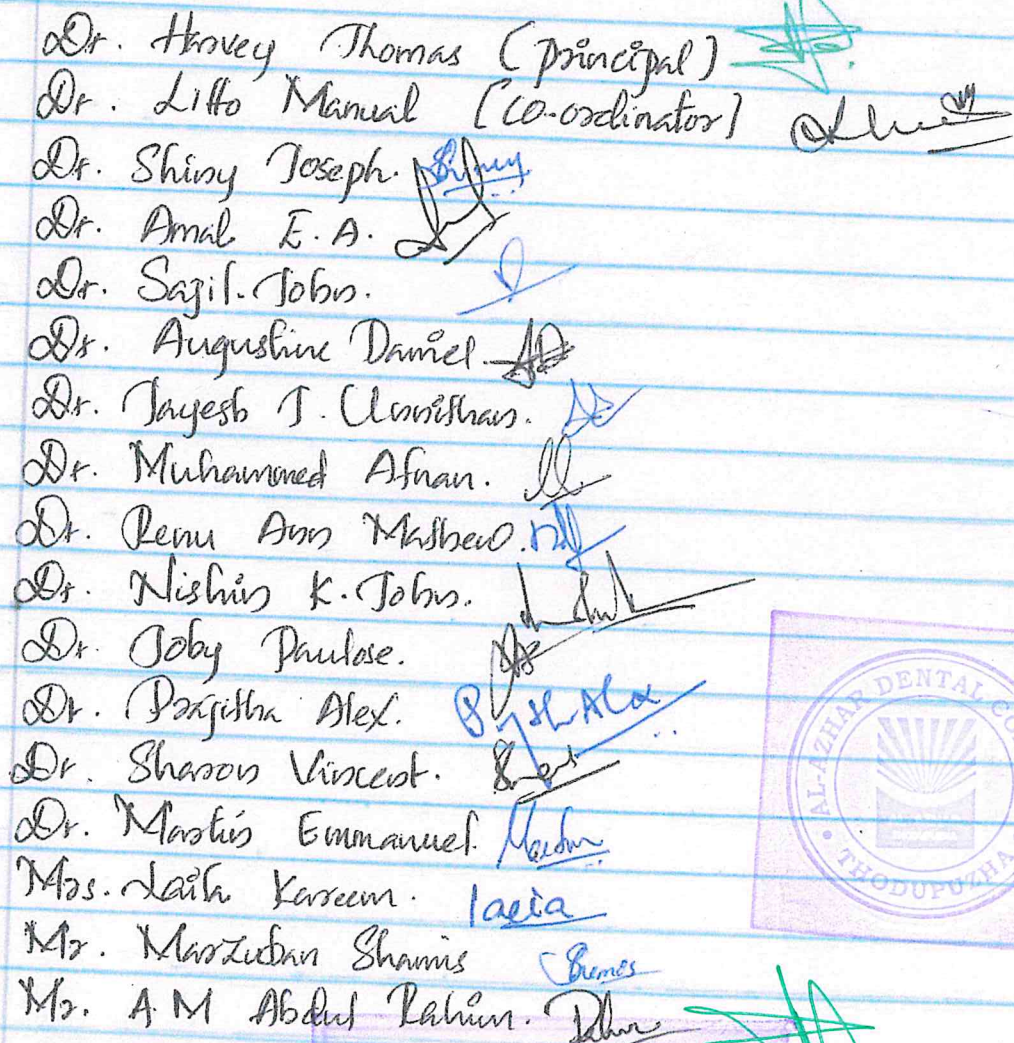 Dr. Harvey Thomas (principal)
Dr. Litto Manual [co-ordinator]
Dr. Shiny Joseph.
Dr. Amal E.A.
Dr. Sajil. John.
Dr. Augustine Daniel
Dr. Jayesh J. Unnithan.
Dr. Muhammed Afnan.
Dr. Renu Ann Mathew.
Dr. Nishin K. John.
Dr. Joby Paulose.
Dr. Prajitha Alex.
Dr. Sharon Vincent.
Dr. Martin Emmanuel.
Mrs. Laila Kareem.
Mr. Marzuban Shamis
Mr. A.M Abdul Rahim.
AL-AZHAR DENTAL CO
THODUPUZHA